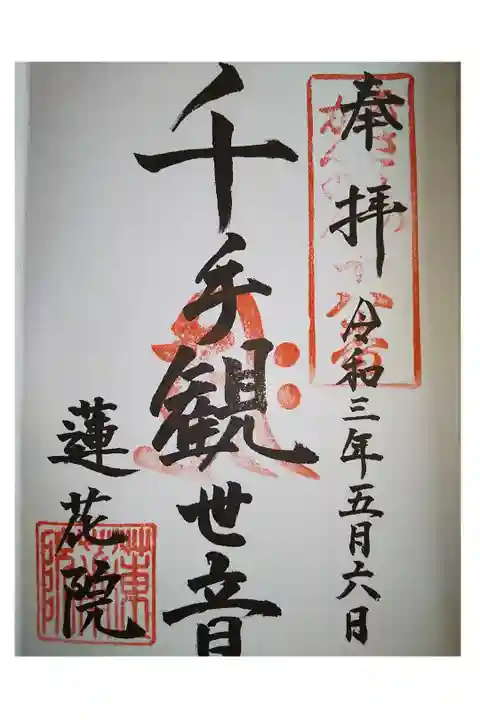 奉拝 令和三年五月六日
千手観世音
蓮花院